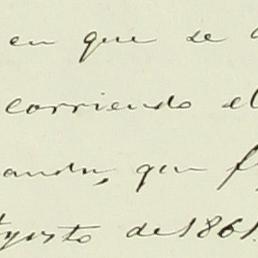 en que se
corriendo el
que
Agosto de 1861.